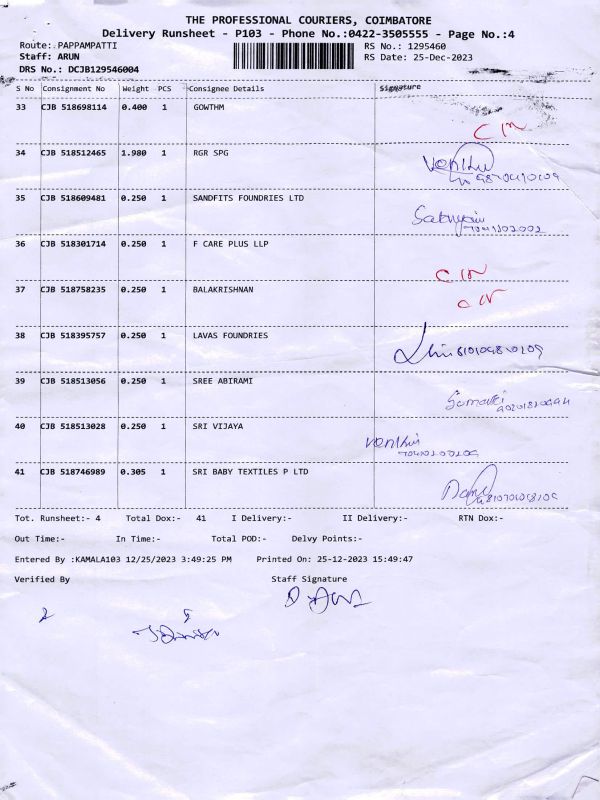 THE PROFESSIONAL COURIERS, COIMBATORE
Delivery Runsheet - P103 - Phone No.:0422-3505555 - Page No.:4
Route: PAPPAMPATTI RS No.: 1295460
Staff: ARUN RS Date: 25-Dec-2023
DRS No.: DCJB129546004
S No Consignment No Weight PCS Consignee Details Signature
33 CJB 518698114 0.400 1 GOWTHM
34 CJB 518512465 1.980 1 RGR SPG
35 CJB 518609481 0.250 1 SANDFITS FOUNDRIES LTD
36 CJB 518301714 0.250 1 F CARE PLUS LLP
37 CJB 518758235 0.250 1 BALAKRISHNAN
38 CJB 518395757 0.250 1 LAVAS FOUNDRIES
39 CJB 518513056 0.250 1 SREE ABIRAMI
40 CJB 518513028 0.250 1 SRI VIJAYA
41 CJB 518746989 0.305 1 SRI BABY TEXTILES P LTD
Tot. Runsheet:- 4 Total Dox:- 41 I Delivery:- II Delivery:- RTN Dox:-
Out Time:- In Time:- Total POD:- Delvy Points:-
Entered By :KAMALA103 12/25/2023 3:49:25 PM Printed On: 25-12-2023 15:49:47
Verified By Staff Signature